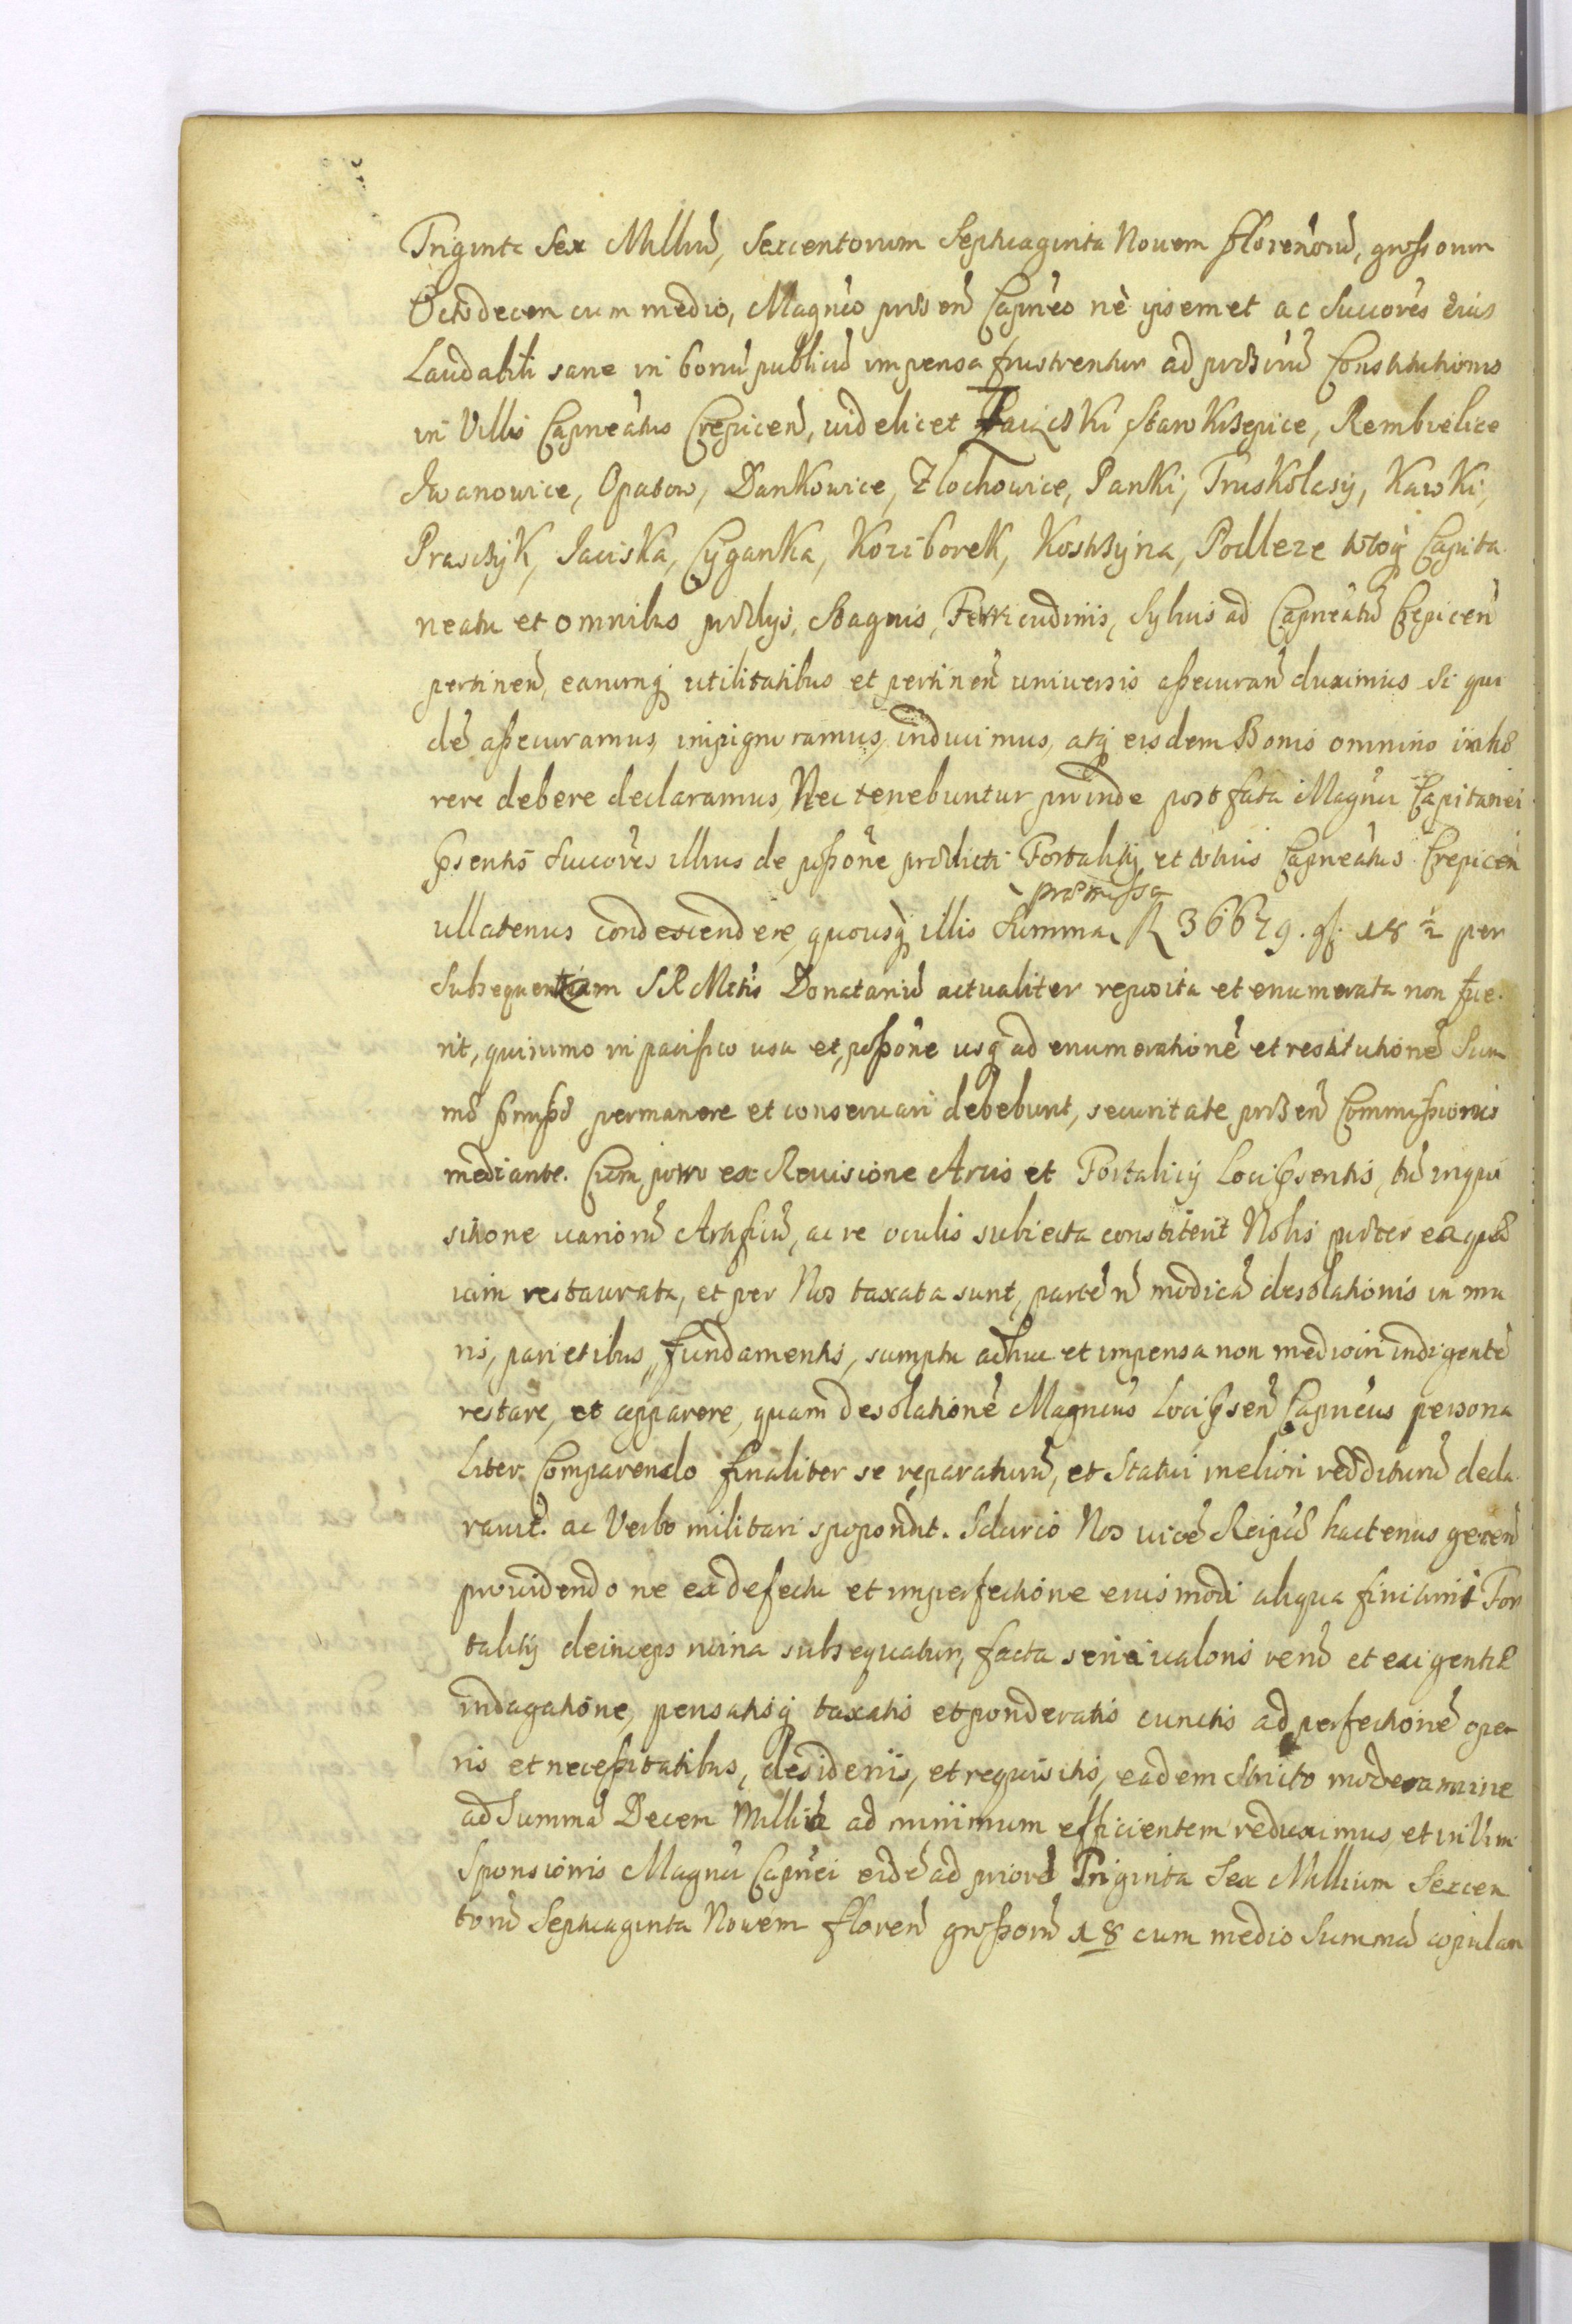 Triginta Sex Milliũ, Sexcentorum Septuaginta Nouem florenorũ, grossorum
Octodecem cum medio, Magnĩco præsen̄ Capnẽo nè ipsemet ac Succorẽs eius
Laudabili sane in bonũ publicũ impensa frustrentur ad præscriũ Constitutionis
in Villis Capneãtus Crepiceñ, uidelicet Starokrzepice, Rembielice
Iwanowice, Opatow, Dankowice, Zlochowice, Panki, Truskolasy, Kawki,
Praszczyk, Iaciska, Cyganka, Kozi borek, Kostrzyna, Podleze totoq̃ Capita
neatu et omnibus prædijs, Stagnis, Ferricudinis, Syluis ad Capneãtũ Crepiceñ
pertineñ, earumq̃ utilitatibus et pertineñ uniuersis assecurañ duximus. Si qui
dẽ assecuramus, inpignoramus, inducimus, atq̃ eisdem Bonis omnino inhæ
rere debere declaramus, Nec tenebuntur proinde post fata Magnĩci Capitanei
p̃sentis Succorẽs illius de possõne prædicti Fortalitij et totius Capneãtus Crepiceñ
præmissa
ullatenus condescendere, quousq̃ illis Summa fl 36679. gſ. 18 ½ per
Subsequentiam S R Mttis Donatariũ actualiter reposita et enumerata non fue
rit, quinimo in pacifico usu et possõne usq̃ ad enumerationẽ et restitutionẽ Sum
mæ p̃missæ permanere et conseruari debebunt, securitate præsen̄ Commissionis
mediante. Cum porro ex Reuisione Arcis et Fortalicij Loci p̃sentis, tũ inqui
sitione uariorũ Artificũ, ac re oculis subiecta constiterit Nobis præter ea quæ
iam restaurata, et per Nos taxata sunt, partẽ ñ modicã desolationis in mu
ris, parietibus, fundamentis, sumptu adhuc et impensa non mediocri indigentẽ
restare, et apparere, quam desolationẽ Magnĩcus Loci p̃señ Capnẽus persona
liter Comparendo finaliter se reparaturũ, et Statui meliori redditurũ decla
rauit. ac Verbo militari spopondit. Idcirco Nos uicẽ Reipũæ hactenus gereñ
prouidendo ne ex defectu et imperfectione eiusmodi aliqua finitimi For
talitij deinceps ruina subsequatur, facta seria ualoris rerũ et exigentiæ
indagatione, pensatisq̃ taxatis et ponderatis cunctis ad perfectionẽ ope
ris et necessitatibus, desiderijs, et requisitis, eadem stricto moderamine
ad Summã Decem Milliũ ad minimum efficientem reduximus, et in Vim
Sponsionis Magnĩci Capnẽi eidẽ ad priorẽ Triginta Sex Millium Sexcen
torũ Septuaginta Nouem floreñ grossorũ 18 cum medio Summã copulan